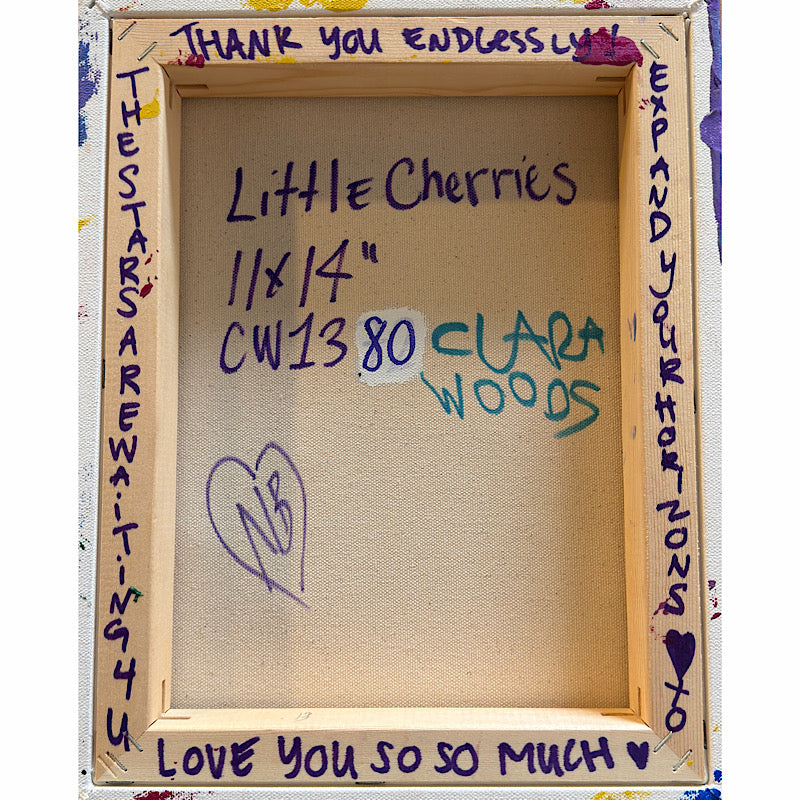 THANK YOU ENDLESSLY!
THE STARS ARE WAITING 4 U
EXPAND YOUR HORIZONS ♥ XO
Little Cherries
11x14"
CW1380
CLARA
WOODS
NB
LOVE YOU SO SO MUCH ♥